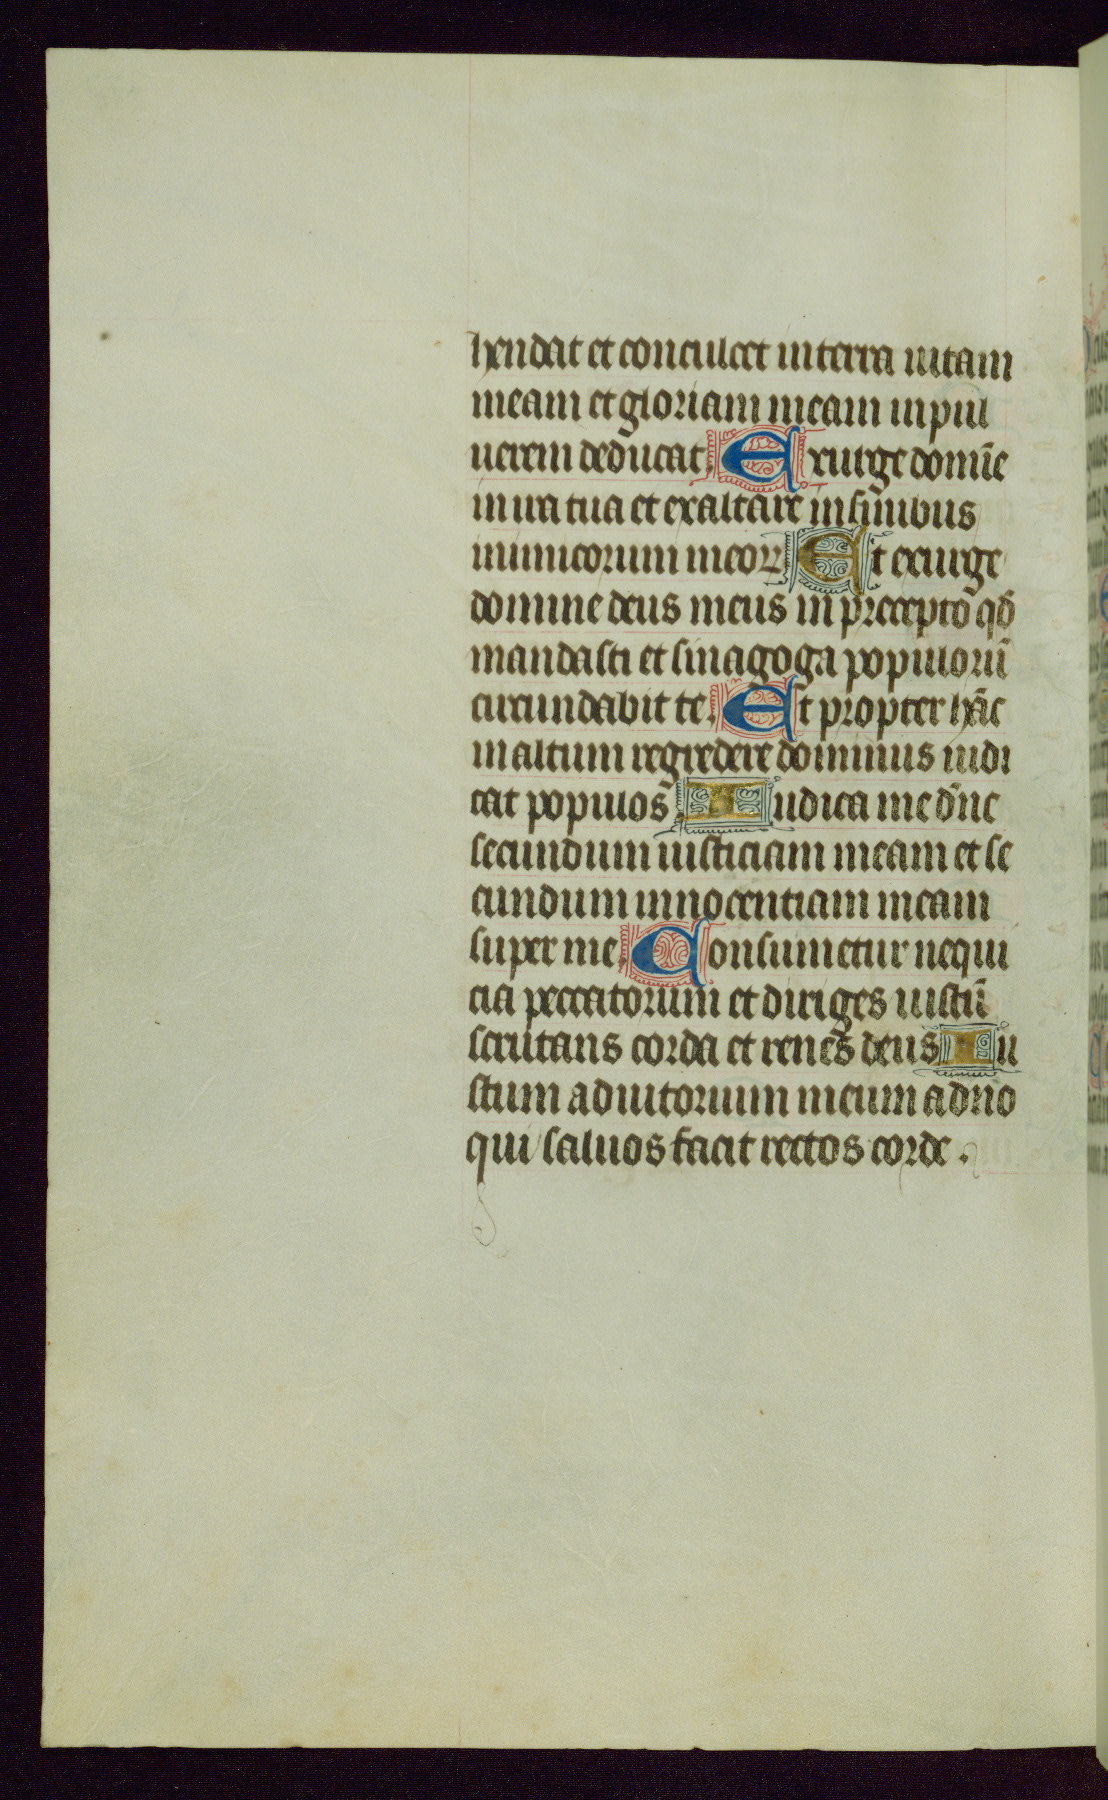 hendat et conculcet in terra uitam
meam et gloriam meam in pul
uerem deducat. Exurge domīe
in ira tua et exaltare in finibus
inimicorum meoꝝ Et exurge
domine deus meus in precepto qđ
mandasti et sinagoga populorū
circundabit te. Et propter hāc
in altum regredere dominus iudi
cat populos Iudica me dñe
secundum iusticiam meam et se
cundum innocentiam meam
super me. Consumetur nequi
cia peccatorum et diriges iustū
scrutans corda et renes deus Iu
stum adiutorium meum a dño
qui saluos facit rectos corde.